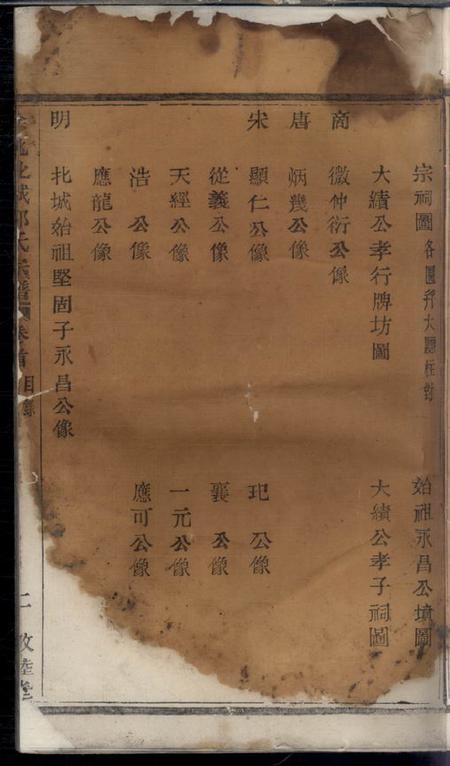 宗祠圖 各圖 大廳柱對 始祖永昌公墳圖
大績公孝行牌坊圖 大績公孝子祠圖
商 微仲衍公像
唐 炳㡬公像
宋 顯仁公像 玘公像
從義公像 襄公像
天經公像 一元公像
浩公像 應可公像
應龍公像
明 北城始祖堅固子永昌公像
北城 氏宗譜 卷首 目錄 二 敦睦堂